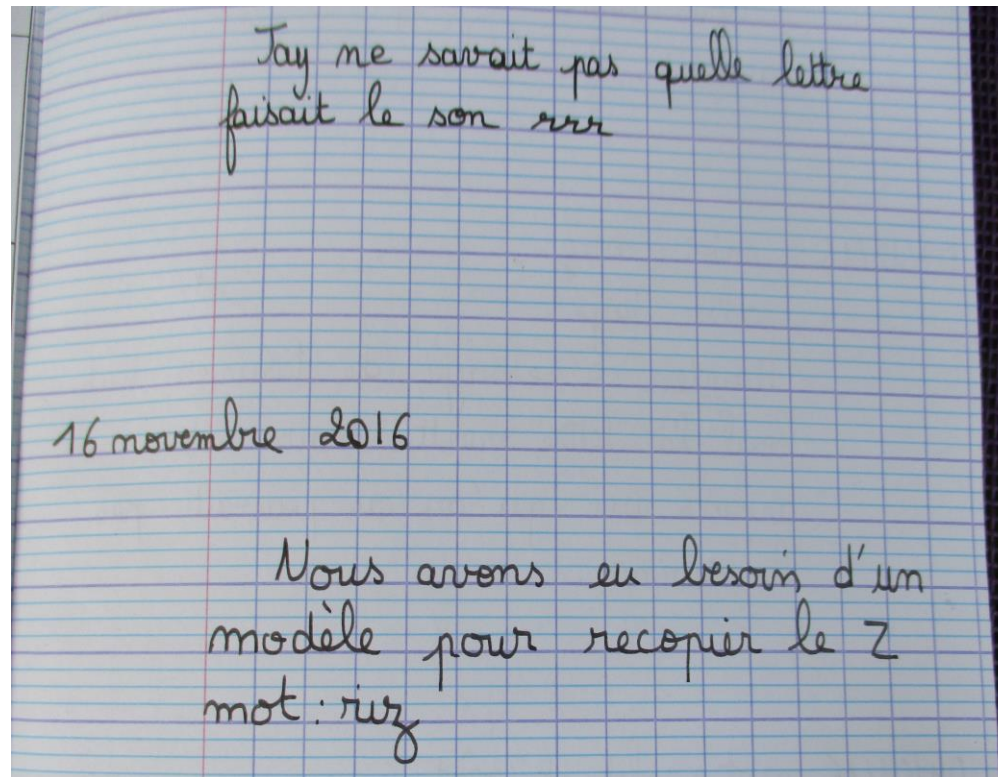 Jay ne savait pas quelle lettre
faisait le son rrr
16 novembre 2016
Nous avons eu besoin d'un
modèle pour recopier le Z
mot : riz